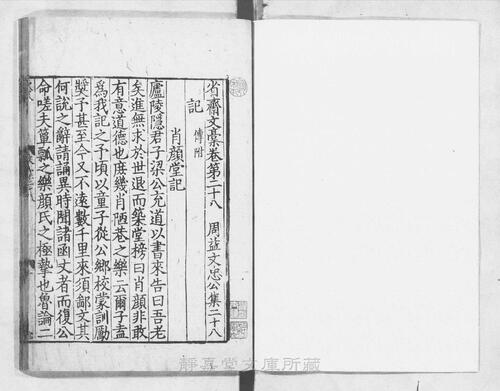 省齋文稾卷第二十八　周益文忠公集二十八
記　傳附
肖顔堂記
廬陵隱君子梁公充道以書來告曰吾老
矣進無求於世退而築堂榜曰肖顔非敢
有意道德也庶幾肖陋巷之樂云爾子盍
爲我記之予頃以童子從公鄉校蒙訓勵
奬予甚至今又不遠數千里來須鄙文其
何説之辭請誦異時聞諸函丈者而復公
命嗟夫簞瓢之樂顔氏之極摯也魯論二
靜嘉堂文庫所藏